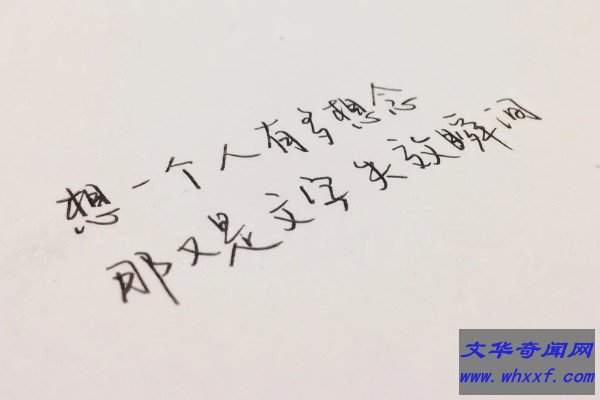 想一个人有多想念
那又是文字失效瞬间
文华奇闻网
www.whxxf.com